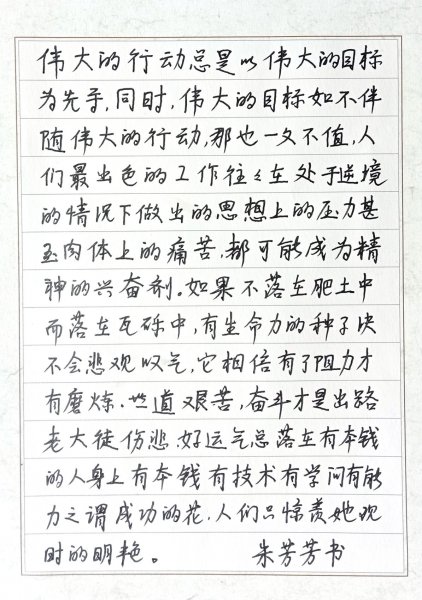 伟大的行动总是以伟大的目标
为先导,同时,伟大的目标如不伴
随伟大的行动,那也一文不值,人
们最出色的工作往々在处于逆境
的情况下做出的思想上的压力甚
至肉体上的痛苦,都可能成为精
神的兴奋剂。如果不落在肥土中
而落在瓦砾中,有生命力的种子决
不会悲观叹气,它相信有了阻力才
有磨炼.世道艰苦,奋斗才是出路
老大徒伤悲.好运气总落在有本钱
的人身上有本钱有技术有学问有能
力之谓成功的花.人们只惊羡她现
时的明艳。 朱芳芳书